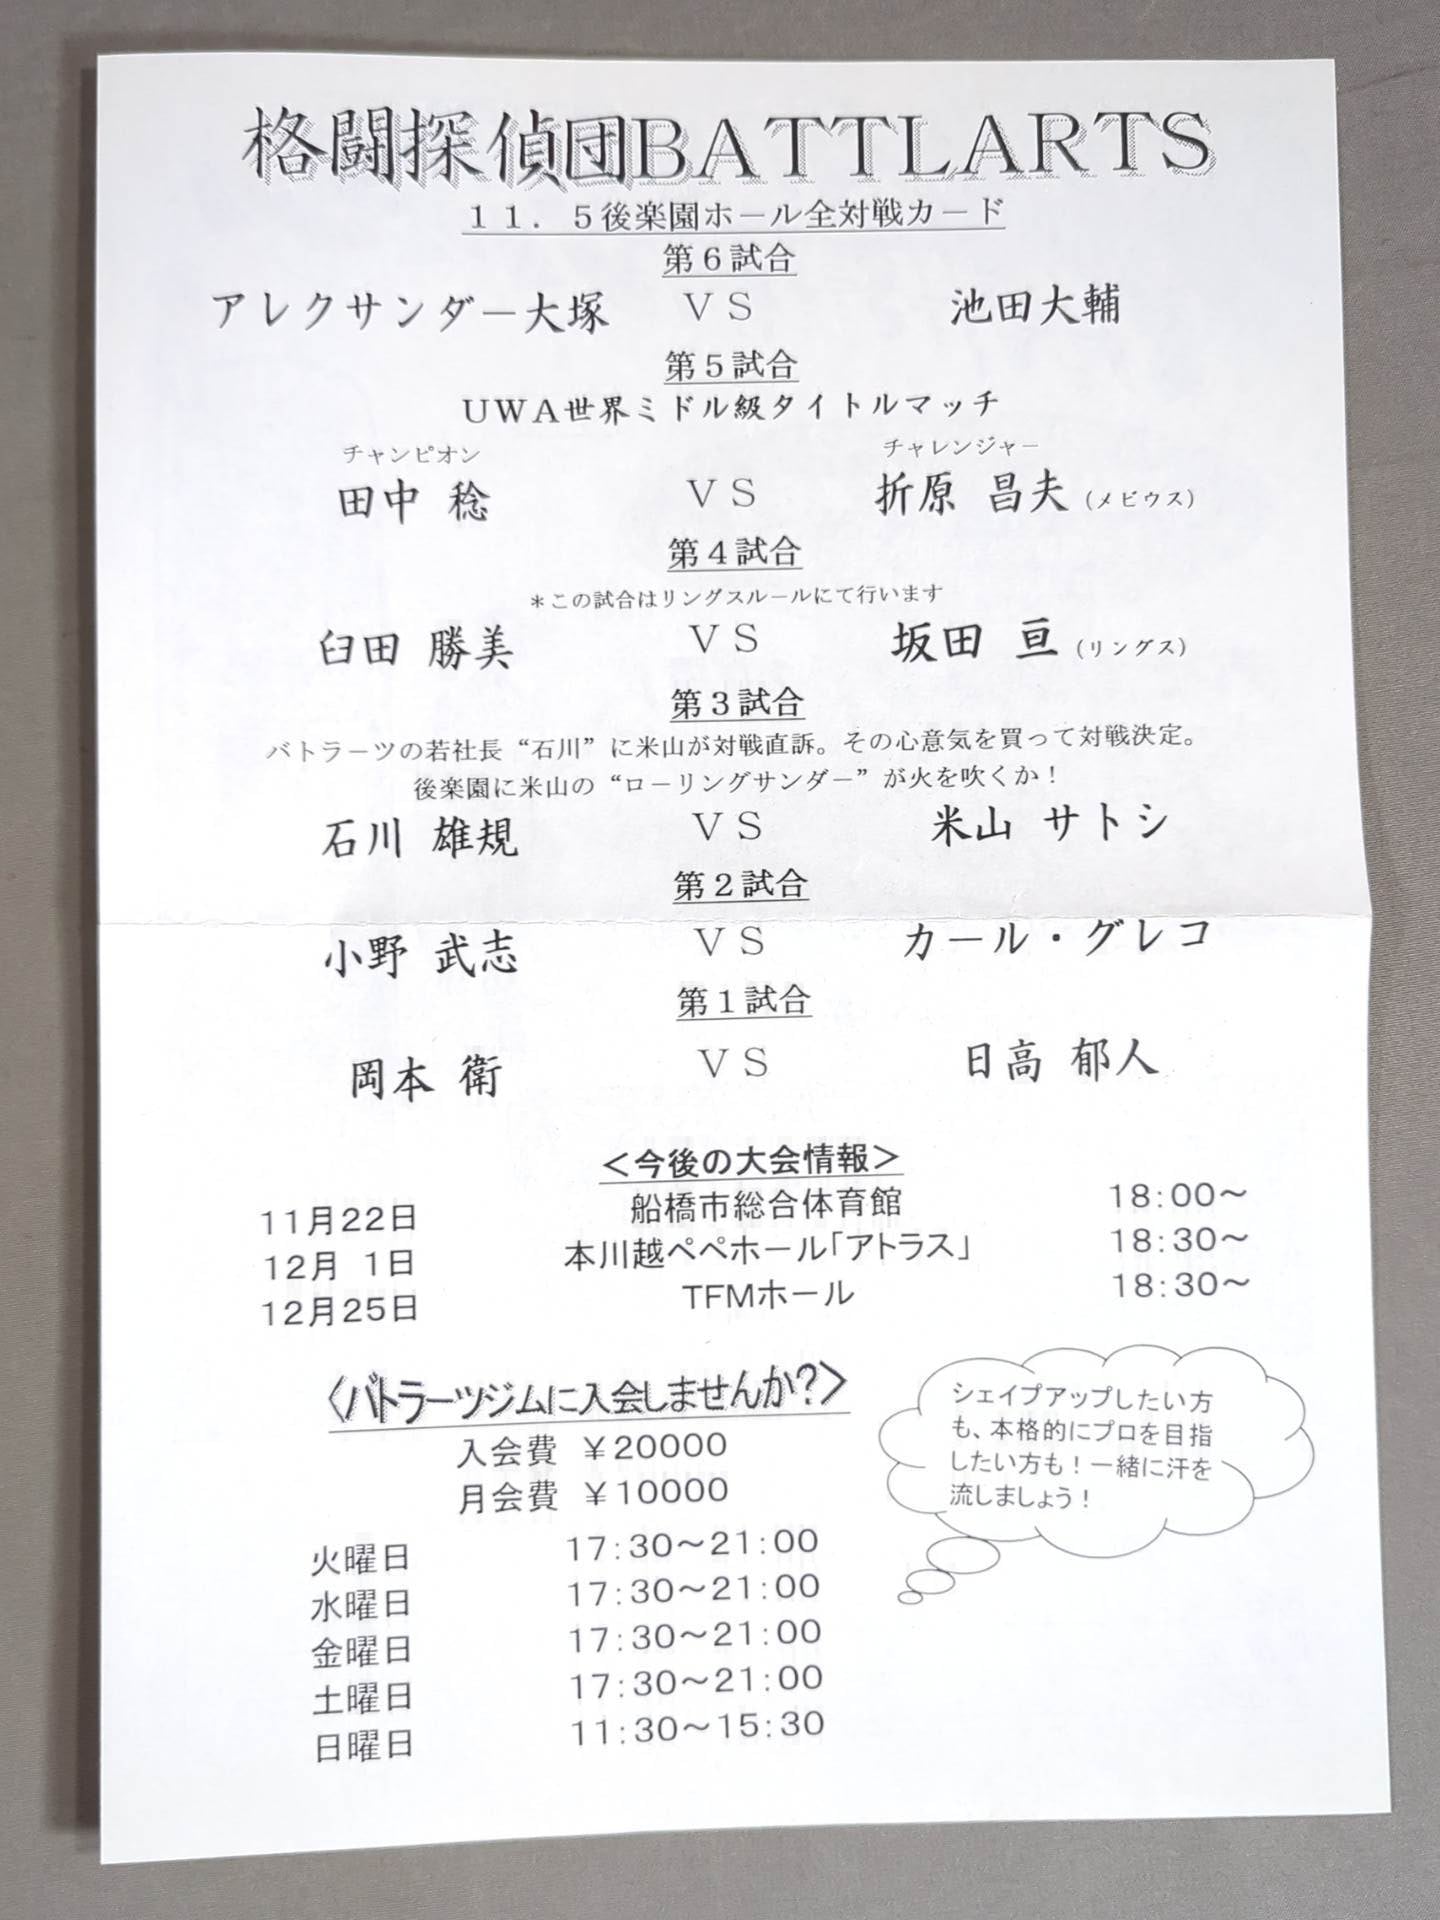 格闘探偵団BATTLARTS
11.5後楽園ホール全対戦カード
第6試合
アレクサンダー大塚 VS 池田大輔
第5試合
UWA世界ミドル級タイトルマッチ
チャンピオン チャレンジャー
田中 稔 VS 折原 昌夫(メビウス)
第4試合
*この試合はリングスルールにて行います
臼田 勝美 VS 坂田 亘(リングス)
第3試合
バトラーツの若社長“石川”に米山が対戦直訴。その心意気を買って対戦決定。
後楽園に米山の“ローリングサンダー”が火を吹くか！
石川 雄規 VS 米山 サトシ
第2試合
小野 武志 VS カール・グレコ
第1試合
岡本 衛 VS 日高 郁人
<今後の大会情報>
11月22日 船橋市総合体育館 18:00～
12月 1日 本川越ペペホール「アトラス」 18:30～
12月25日 TFMホール 18:30～
<バトラーツジムに入会しませんか?>
入会費 ￥20000
月会費 ￥10000
火曜日 17:30～21:00
水曜日 17:30～21:00
金曜日 17:30～21:00
土曜日 17:30～21:00
日曜日 11:30～15:30
シェイプアップしたい方
も、本格的にプロを目指
したい方も！一緒に汗を
流しましょう！